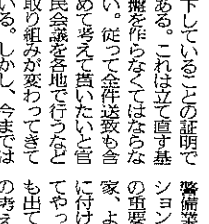 下していることの証明で
ある。これは立て直す基
盤を作らなくてはならな
い。従って金件送致も含
めて考えて貰いたいと官
民会議を各地で行うなど
取り組みが変わってきて
いる。しかし、今までは
警備業
ション
の重要
家、よ
に付け
てやっ
も出て
の考え